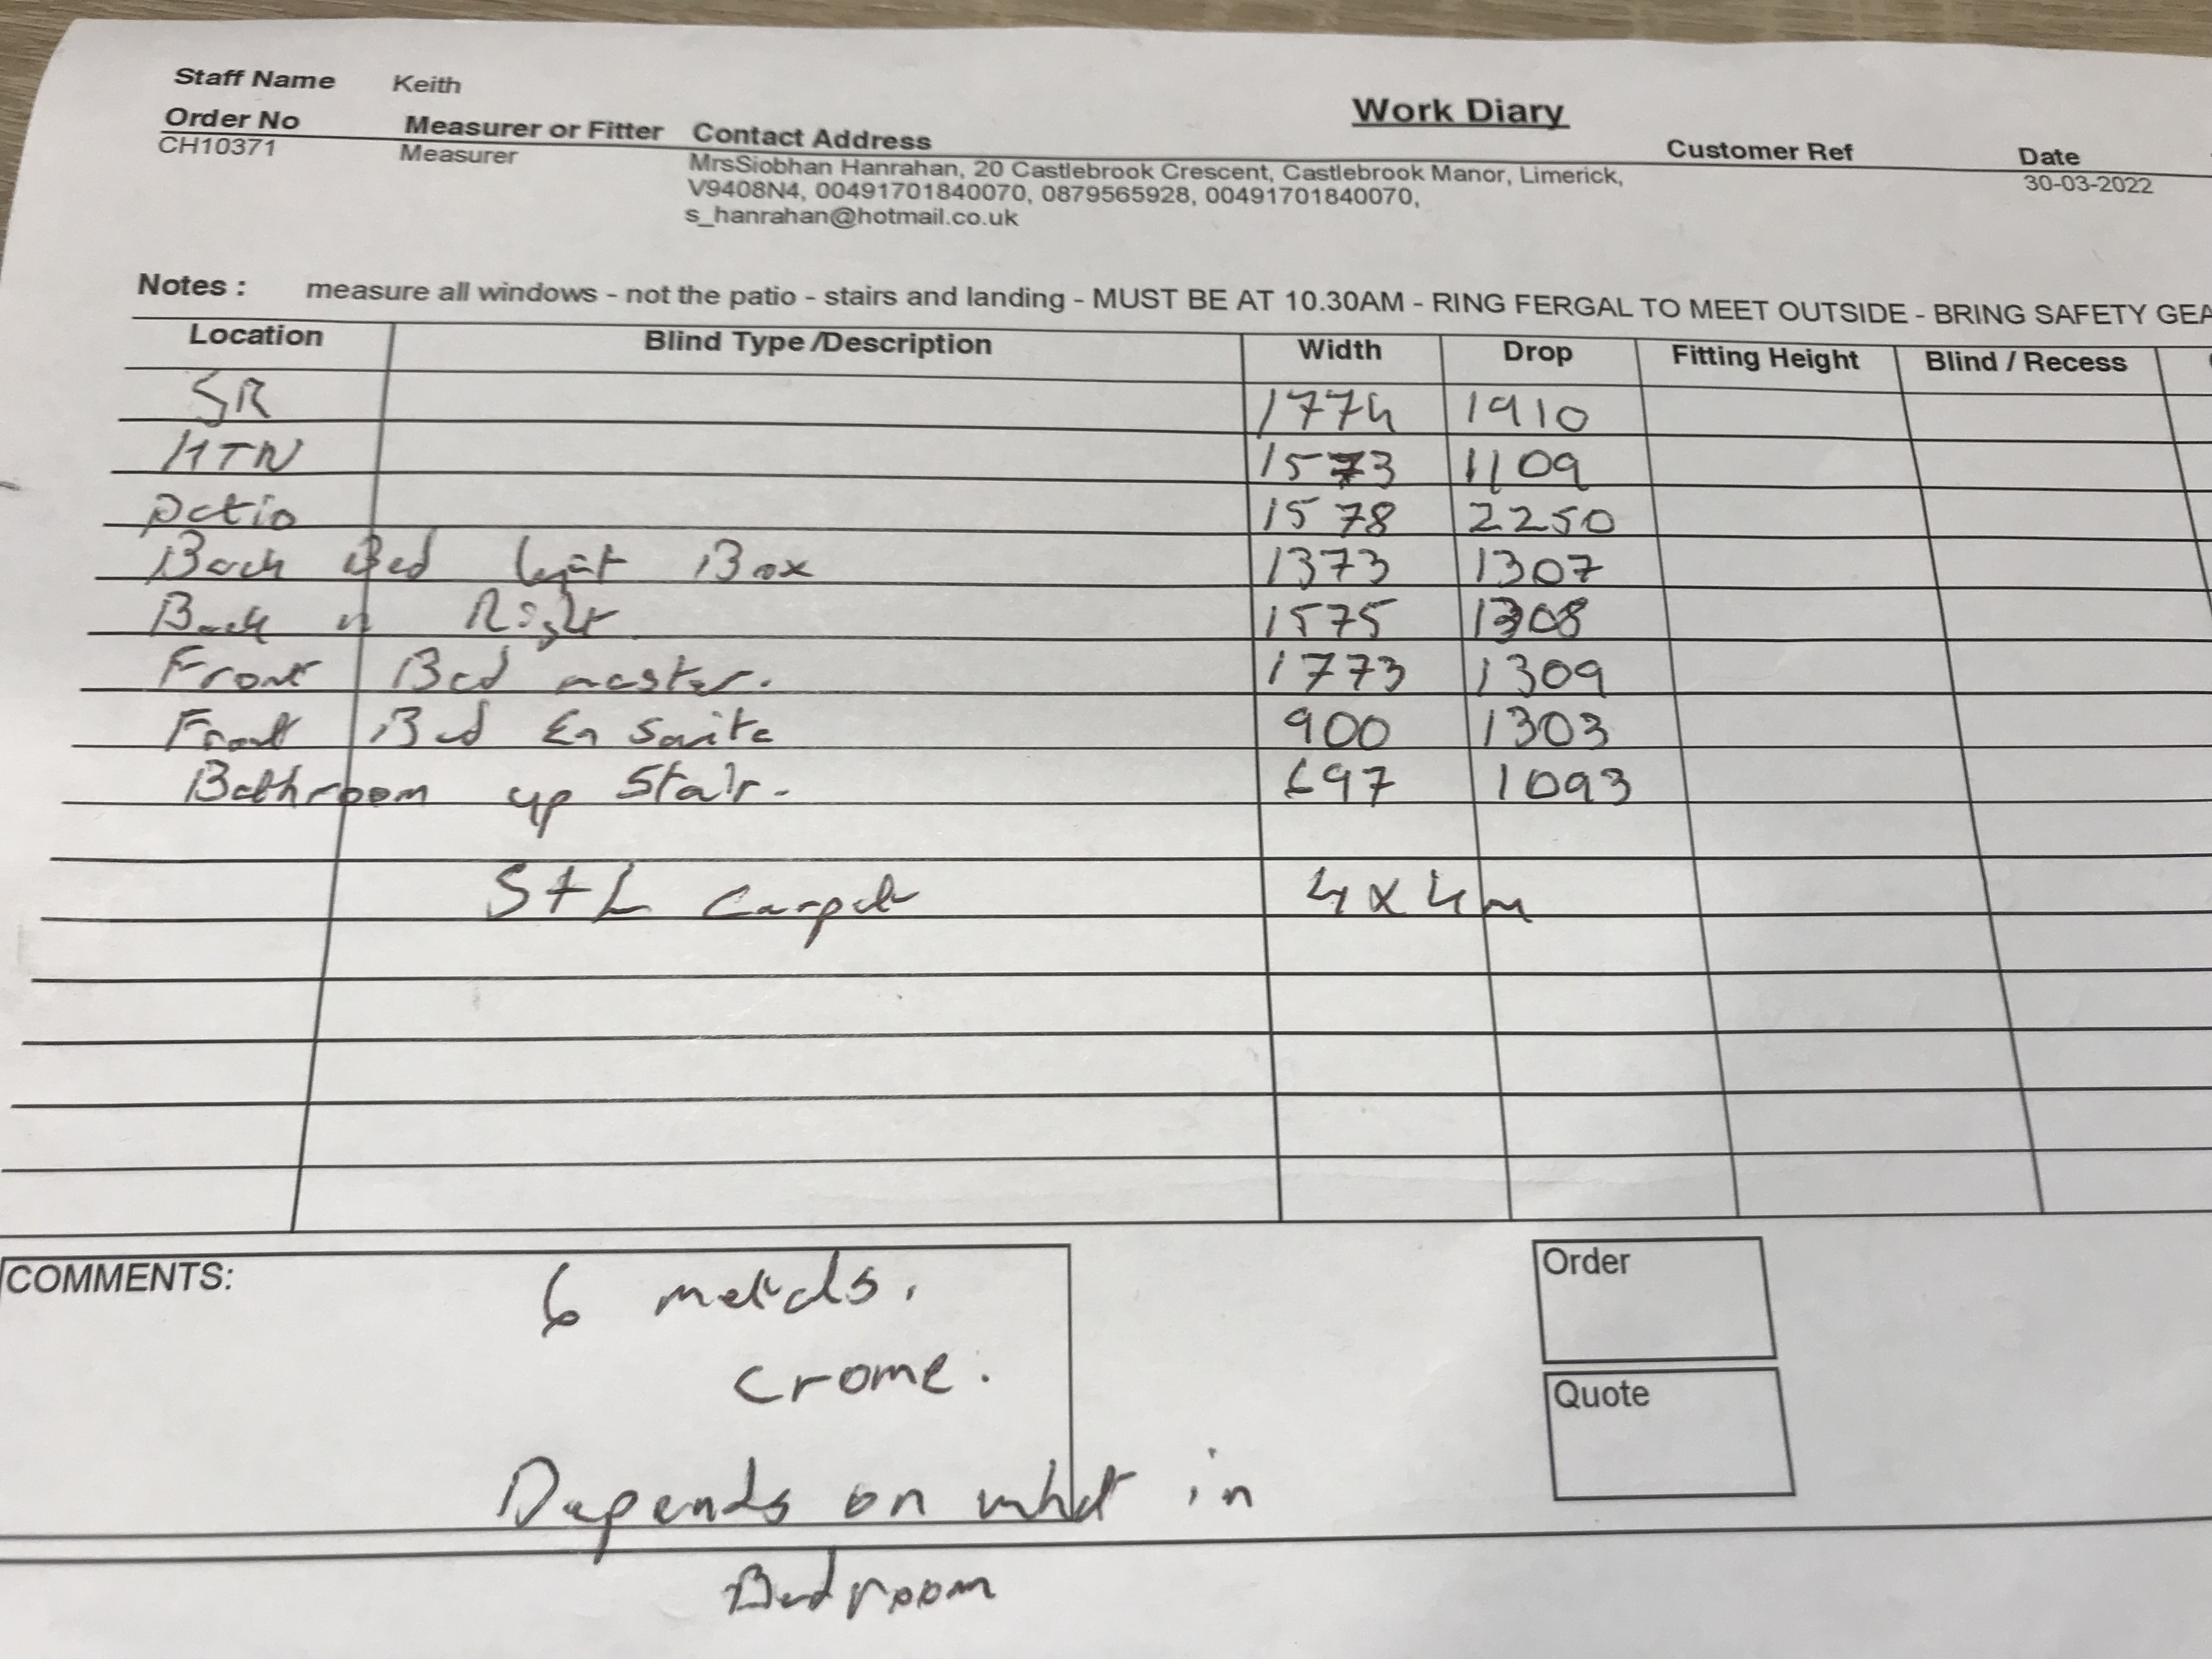 Work Diary
Staff Name Keith
Order No Measurer or Fitter Contact Address Customer Ref Date
CH10371 Measurer MrsSiobhan Hanrahan, 20 Castlebrook Crescent, Castlebrook Manor, Limerick, 30-03-2022
V9408N4, 00491701840070, 0879565928, 00491701840070,
s_hanrahan@hotmail.co.uk
Notes : measure all windows - not the patio - stairs and landing - MUST BE AT 10.30AM - RING FERGAL TO MEET OUTSIDE - BRING SAFETY GEA
Location Blind Type /Description Width Drop Fitting Height Blind / Recess
SR 1774 1910
KTN 1573 1109
patio 1578 2250
Back Bed Box 1373 1307
Back " Right 1575 1308
Front Bed master. 1773 1309
Front Bed En Suite 900 1303
Bathroom up Stair. 697 1093
S+L Carpet 4 x 4m
COMMENTS: 6 metals.
crome.
Depends on what in
Bedroom
Order
Quote